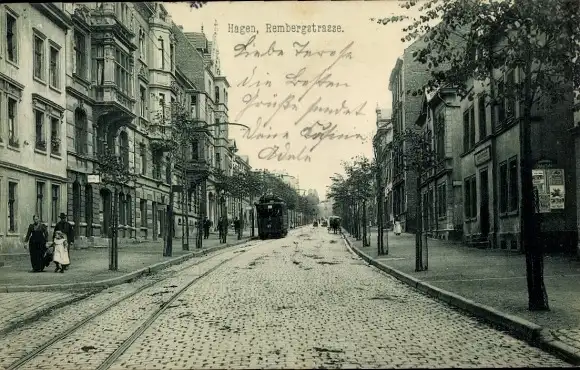 Hagen, Rembergstrasse.
Liebe Terese
die besten
Grüße sendet
Deine Cousine
Adele